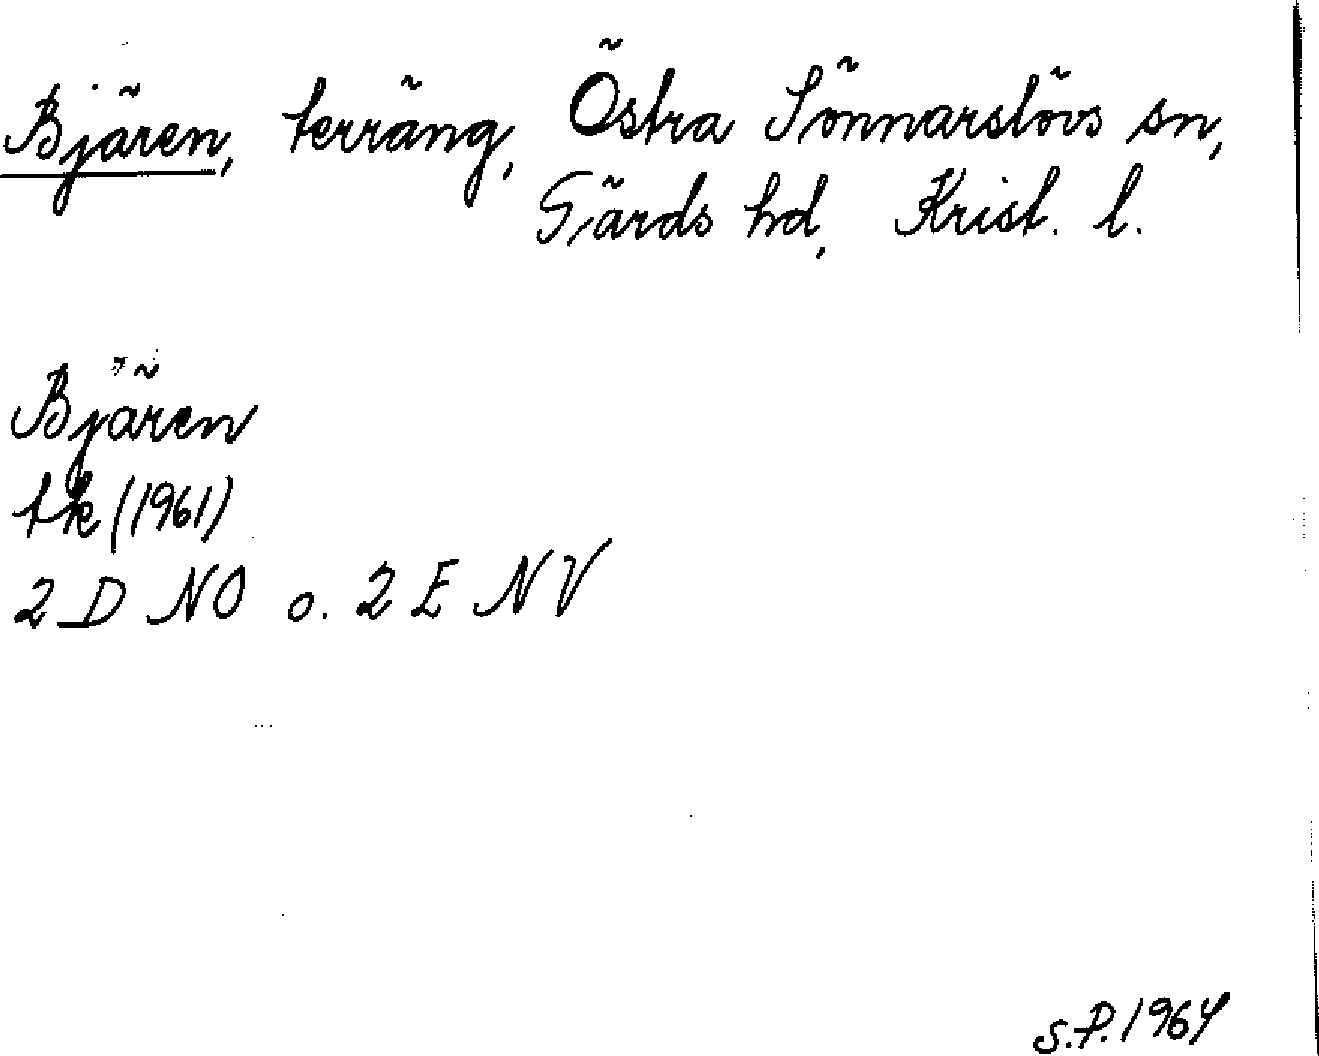 Bjären, terräng, Östra Sönnarslövs sn,
Gärds hd, Krist. l.
Bjären
tk (1961)
2 D NO o. 2 E NV
S.P. 1964